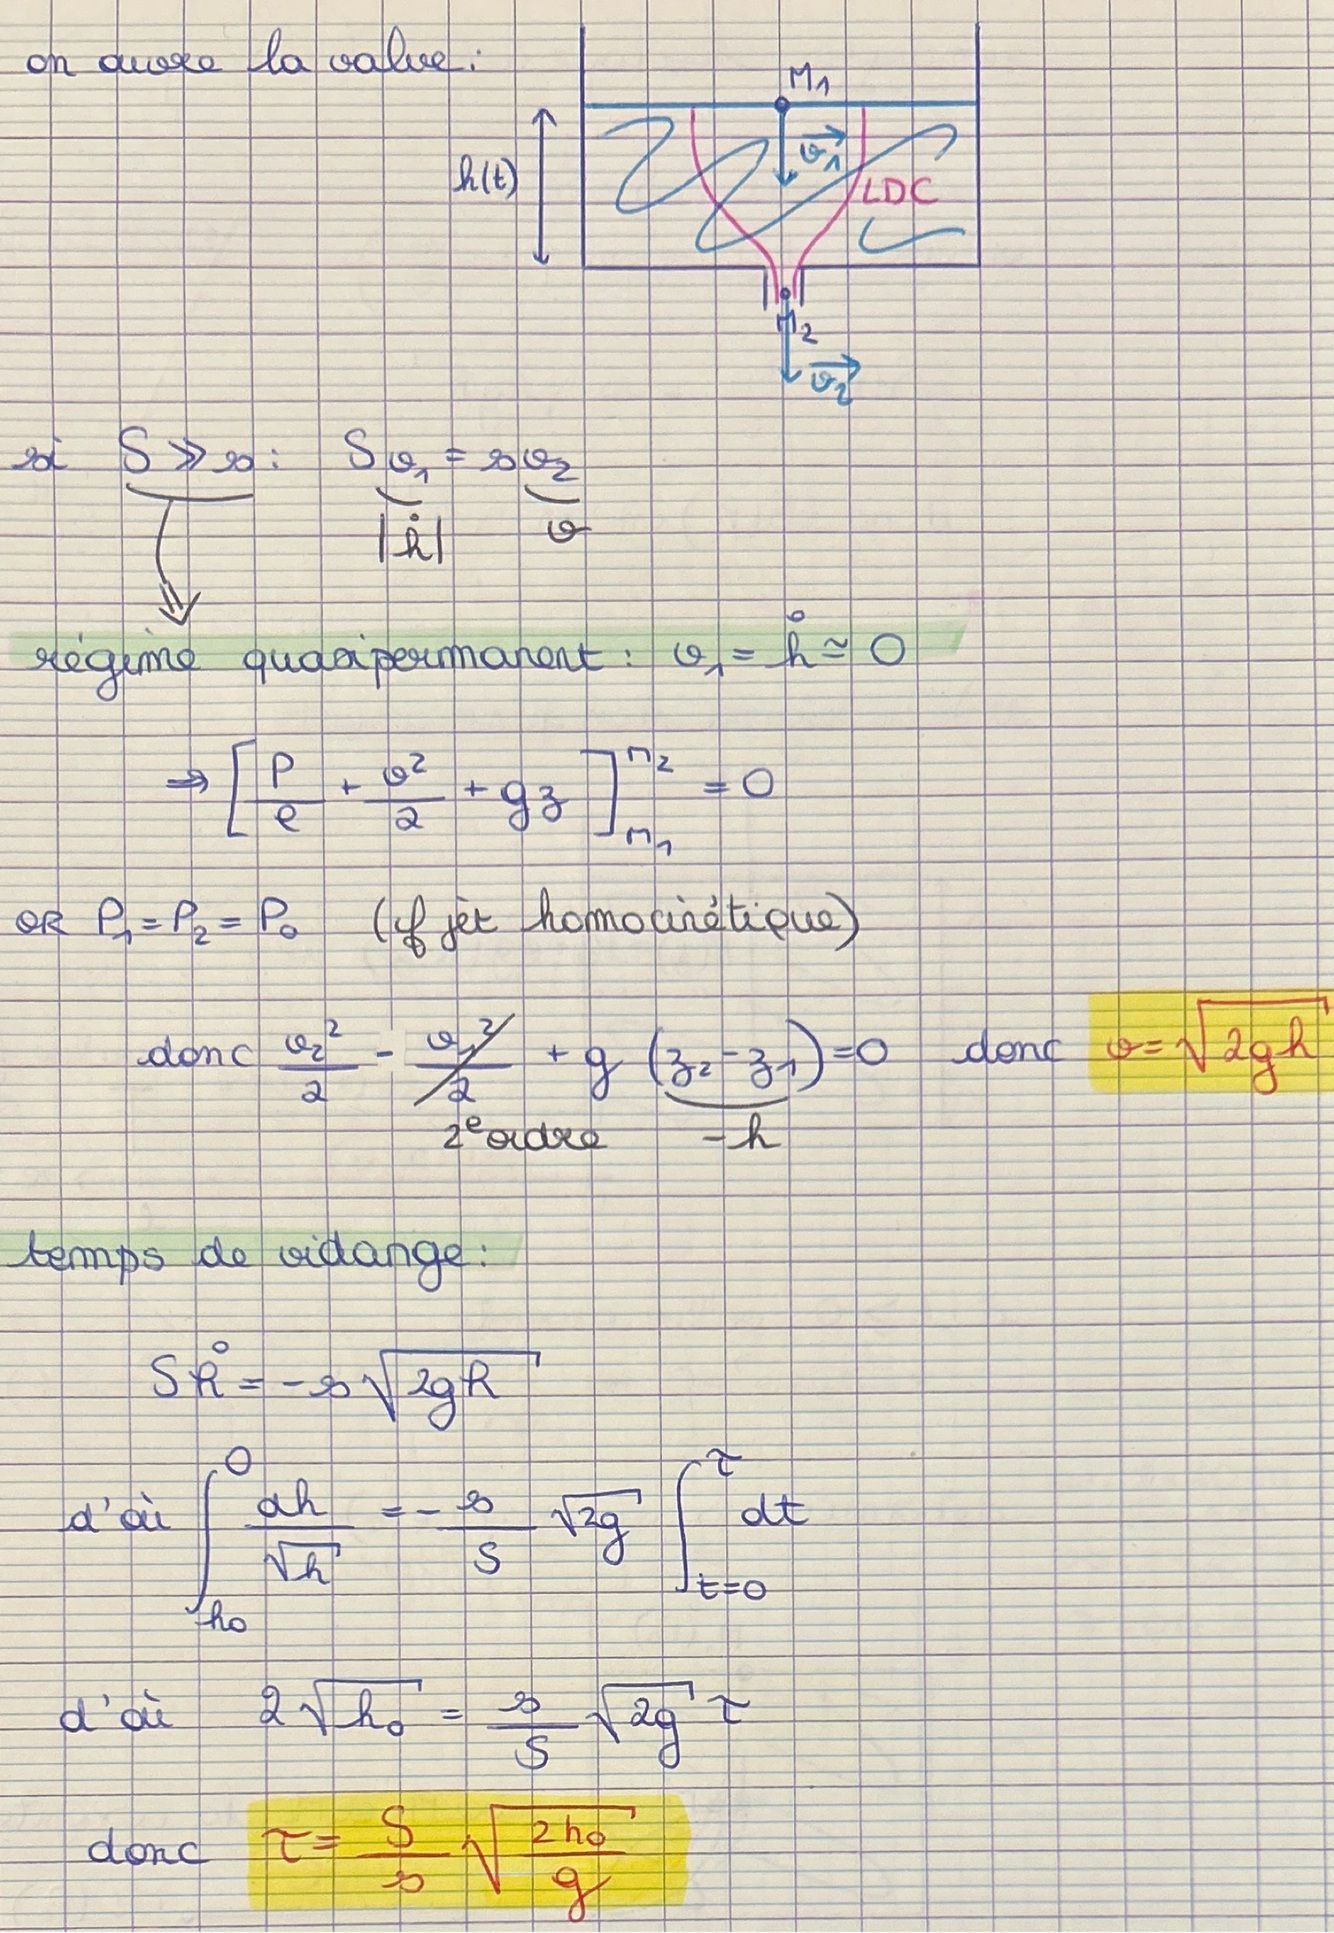 on ouvre la valve :
M₁
h(t)
v₁⃗
LDC
M₂
v₂⃗
si S ≫ s : S v₁ = s v₂
|ḣ| v
régime quasipermanent : v₁ = ḣ ≃ 0
⇒ [P/ρ + v²/2 + gz]_{M₁}^{M₂} = 0
OR P₁ = P₂ = P₀ (cf jet homocinétique)
donc v₂²/2 - v₁²/2 + g (z₂ - z₁) = 0 donc v = √(2gh)
2e ordre -h
temps de vidange :
Sḣ = -s √(2gh)
d'où ∫_{h₀}^{0} dh/√h = - s/S √(2g) ∫_{t=0}^{τ} dt
d'où 2√(h₀) = s/S √(2g) τ
donc τ = S/s √(2h₀/g)